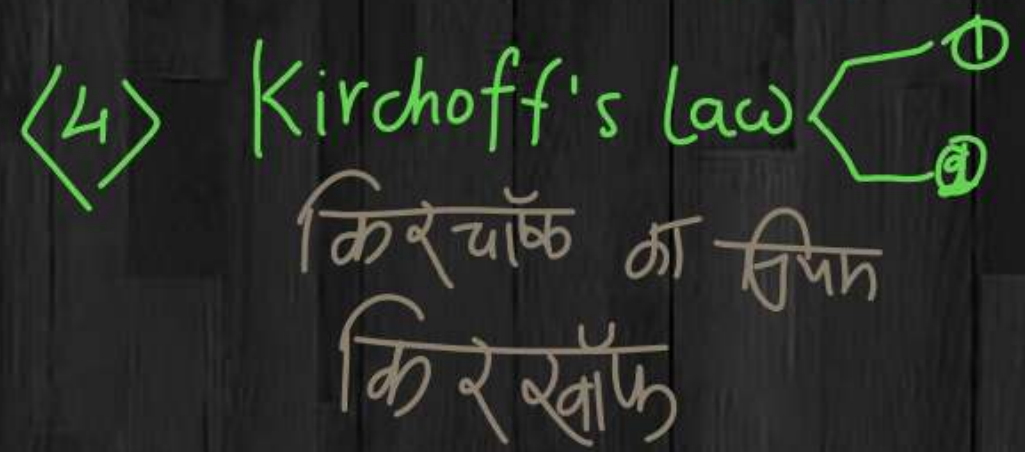 <4> Kirchoff's Law ①
②
किरचॉफ का नियम
किरखॉफ